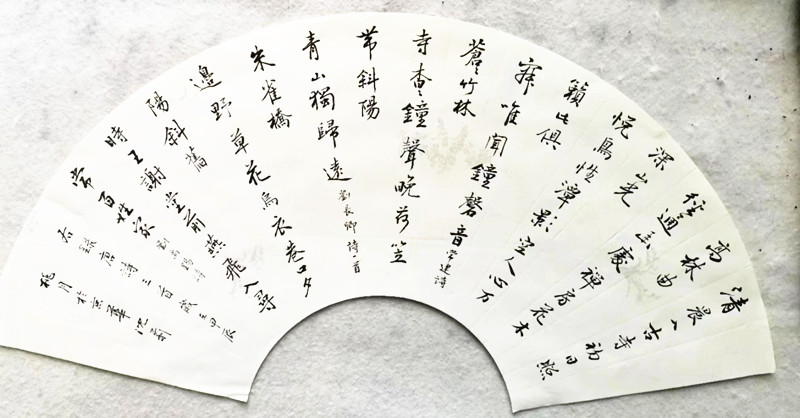 清晨入古寺初日照
高林曲
徑通幽處禪房花木
深山光
悅鳥性潭影空人心万
籟此俱
寂唯聞鐘磬音常建詩
蒼々竹林
寺杳々鐘聲晚荷笠
帶斜陽
青山獨歸遠劉長卿詩一首
朱雀橋
邊野草花烏衣巷口夕
陽斜舊
時王謝堂前燕飛入尋
常百姓家劉禹錫詩
右錄唐詩三首歲在甲辰
桃月於京華沈